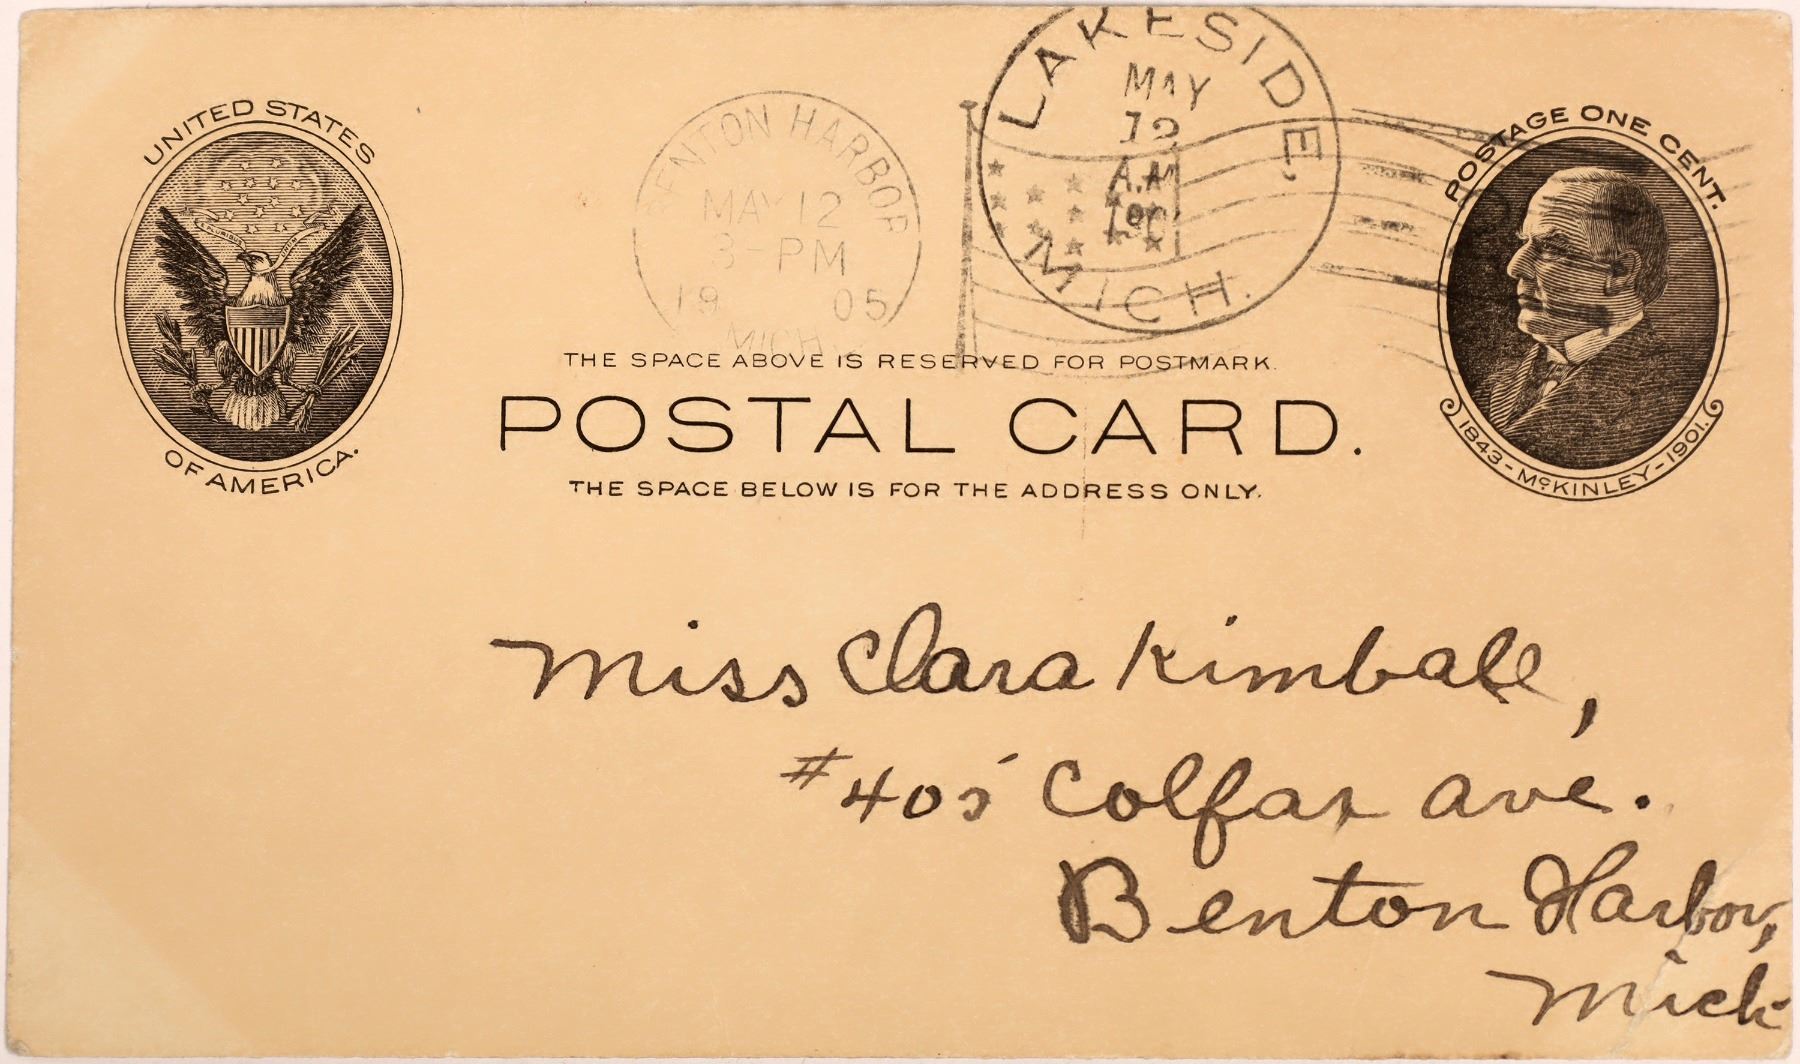 UNITED STATES
OF AMERICA.
BENTON HARBOR
MAY 12
3-PM
19 05
MICH.
LAKESIDE,
MAY
12
A.M
MICH.
POSTAGE ONE CENT.
1843-McKINLEY-1901.
THE SPACE ABOVE IS RESERVED FOR POSTMARK.
POSTAL CARD.
THE SPACE BELOW IS FOR THE ADDRESS ONLY.
Miss Clara Kimball,
#405 Colfax Ave.
Benton Harbor,
Mich